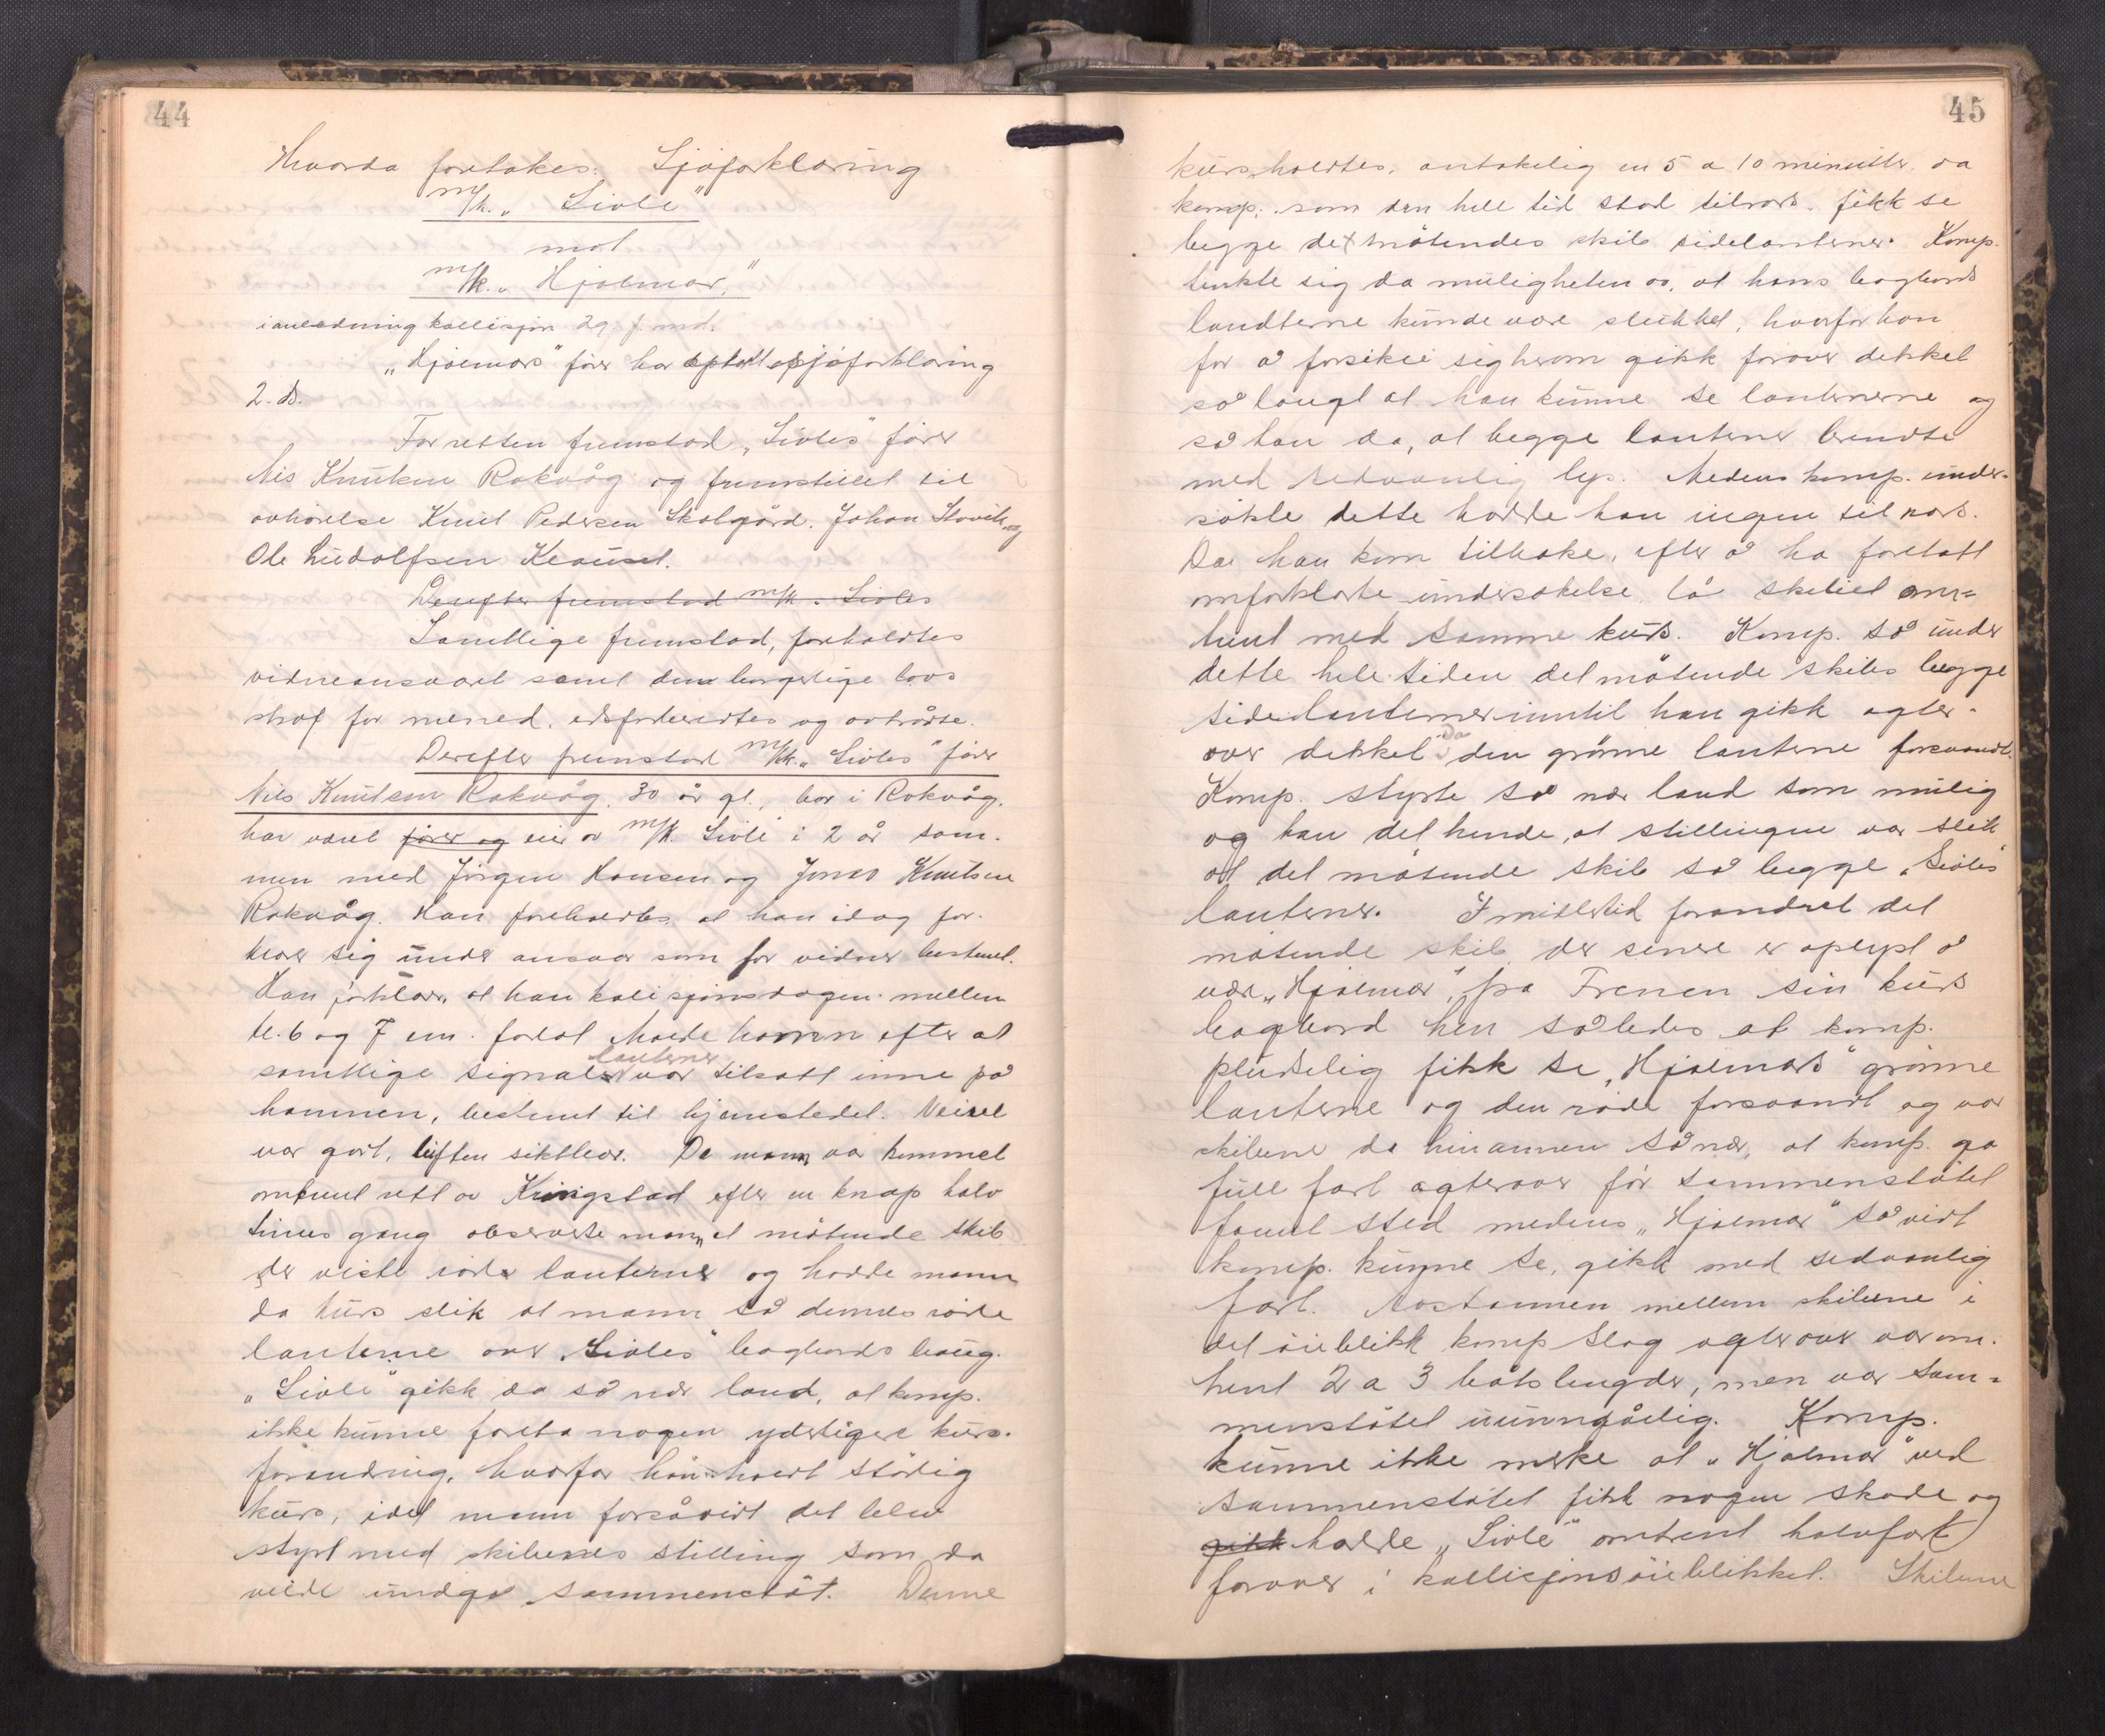 44
Hvorda foretokes: Sjöforklaring
m/k. „Sivle"
mot
m/k. „Hjalmar",
i anledning kollisjon 29. f. md.
„Hjalmars" förer har optatt sjöforklaring
2. ds.
For retten fremstod „Sivles" förer
Nils Knutsen Rokvåg og fremstillet til
avhörelse Knut Pedersen Skolgård, Johan Stavik og
Ole Ludolfsen
Derefter fremstod m/k. Sivles
Samtlige fremstod, foreholdtes
vidneansvaret samt den borgerlige lovs
straf for mened, edsforberedtes og avtrådte.
Derefter fremstod m/k. „Sivles" förer
Nils Knutsen Rokvåg, 30 år gl., bor i Rokvåg,
har været förer og eier av m/k. Sivle i 2 år sam-
men med Jörgen Hansen og Jonas Knutsen
Rokvåg. Han foreholdtes, at han idag for-
klarer sig under ansvar som for vidner bestemt.
Han forklarer, at han kolisjonsdagen mellem
kl. 6 og 7 em. forlot Molde havnen efter at
samtlige signallanterner var tilsatt inne på
havnen, bestemt til hjemstedet. Veiret
var godt, luften siktklar. Da mann var kommet
omtrent rett av Kringstad efter en knap halv
times gang observerte mann et mötende skib
der viste röde lanterner og hadde mann
da kurs slik at mann så dennes röde
lanterne over „Sivles" bagbords boug.
„Sivle" gikk da så nær land, at komp.
ikke kunne foreta nogen yderligere kurs-
forandring, hvorfor han holdt stödig
kurs, idet mann forsåvidt det blev
styrt med skibenes stilling som da
vilde undgå sammenstöt. Denne
45
kurs holdtes, antakelig en 5 a 10 minutter, da
komp., som den hele tid stod tilrors, fikk se
begge det mötendes skibs sidelanterner. Komp.
tenkte sig da muligheten av, at hans bagbords
landterne kunde være slukket, hvorfor han
for å forsikre sig herom gikk forover dekket
så langt at han kunne se lanternerne og
så han da, at begge lanterner brendte
med sedvanlig lys. Medens komp. under-
sökte dette hadde han ingen til rors.
Da han kom tilbake, efter å ha foretatt
omforklarte undersökelse, lå skibet om-
trent med samme kurs. Komp. så under
dette hele tiden det mötende skibs begge
sidelanterner inntil han gikk agter-
over dekket da den grönne lanterne forsvandt.
Komp. styrte så nær land som mulig
og kan det hende, at stillingen var slik
at det mötende skib så begge „Sivles"
lanterner. Imidlertid forandret det
mötende skib, der senere er oplyst å
være „Hjalmar", fra Frenen sin kurs
bagbord hen således at komp.
pludselig fikk se „Hjalmars" grönne
lanterne og den röde forsvandt og var
skibene da hinannen så nær, at komp. ga
full fart agterover för sammenstötet
fannt sted medens „Hjalmar" så vidt
komp. kunne se, gikk med sedvanlig
fart. Avstannen mellem skibene i
det öieblikk komp slog agterover var om-
trent 2 a 3 båtslengder, men var sam-
menstötet uunngåelig. Komp.
kunne ikke merke at „Hjalmar" ved
sammenstötet fikk nogen skade og
gikk hadde „Sivle" omtrent halvfart
forover i kollisjonsöieblikket. Skibene